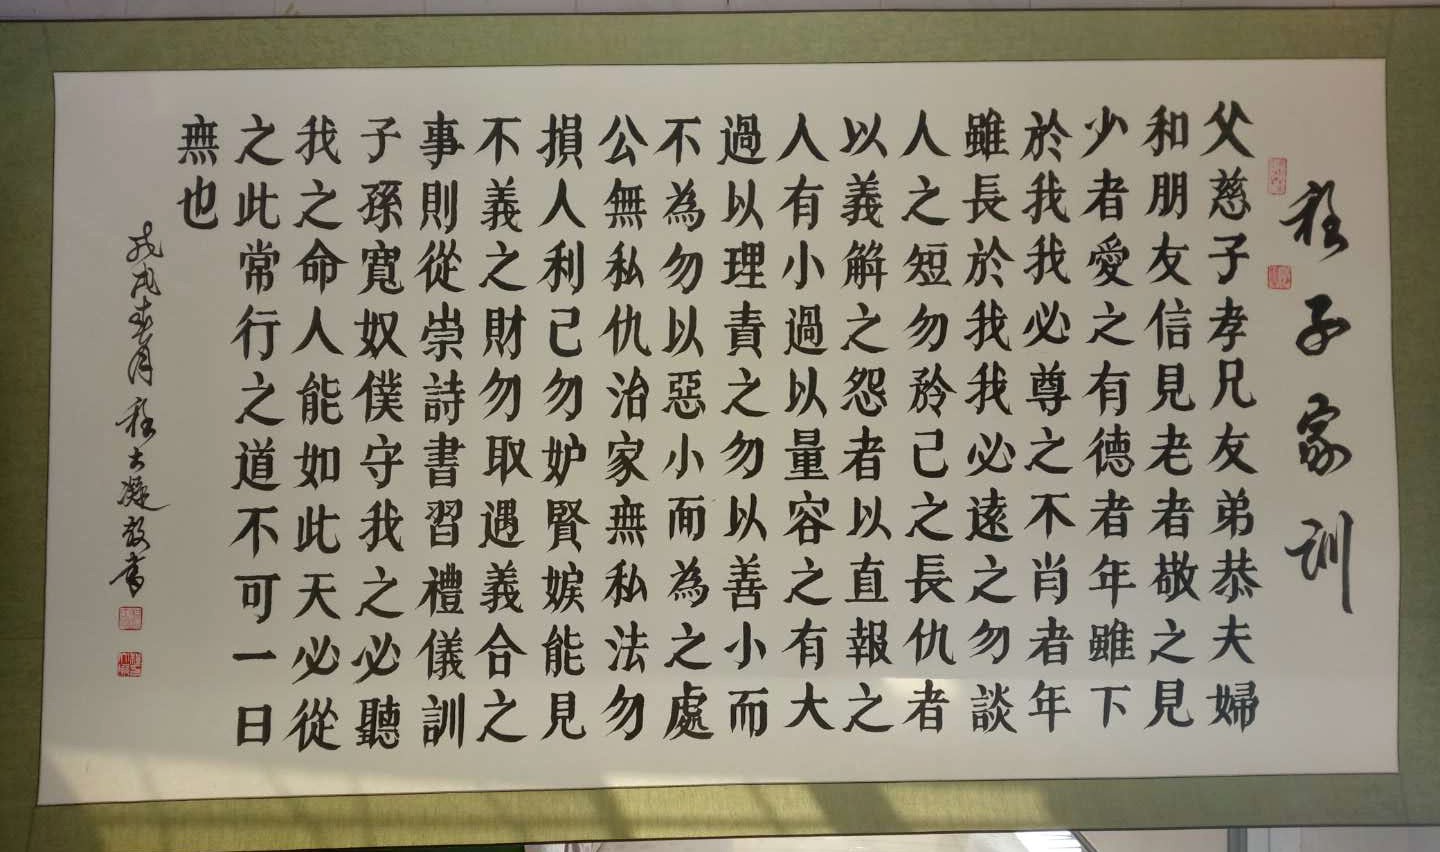 程子家訓
父慈子孝兄友弟恭夫婦
和朋友信見老者敬之見
少者愛之有德者年雖下
於我我必尊之不肖者年
雖長於我我必遠之勿談
人之短勿矜己之長仇者
以義解之怨者以直報之
人有小過以量容之有大
過以理責之勿以善小而
不為勿以惡小而為之處
公無私仇治家無私法勿
損人利己勿妒賢嫉能見
不義之財勿取遇義合之
事則從崇詩書習禮儀訓
子孫寬奴僕守我之必聽
我之命人能如此天必從
之此常行之道不可一日
無也
戊戌春月程大凝敬書